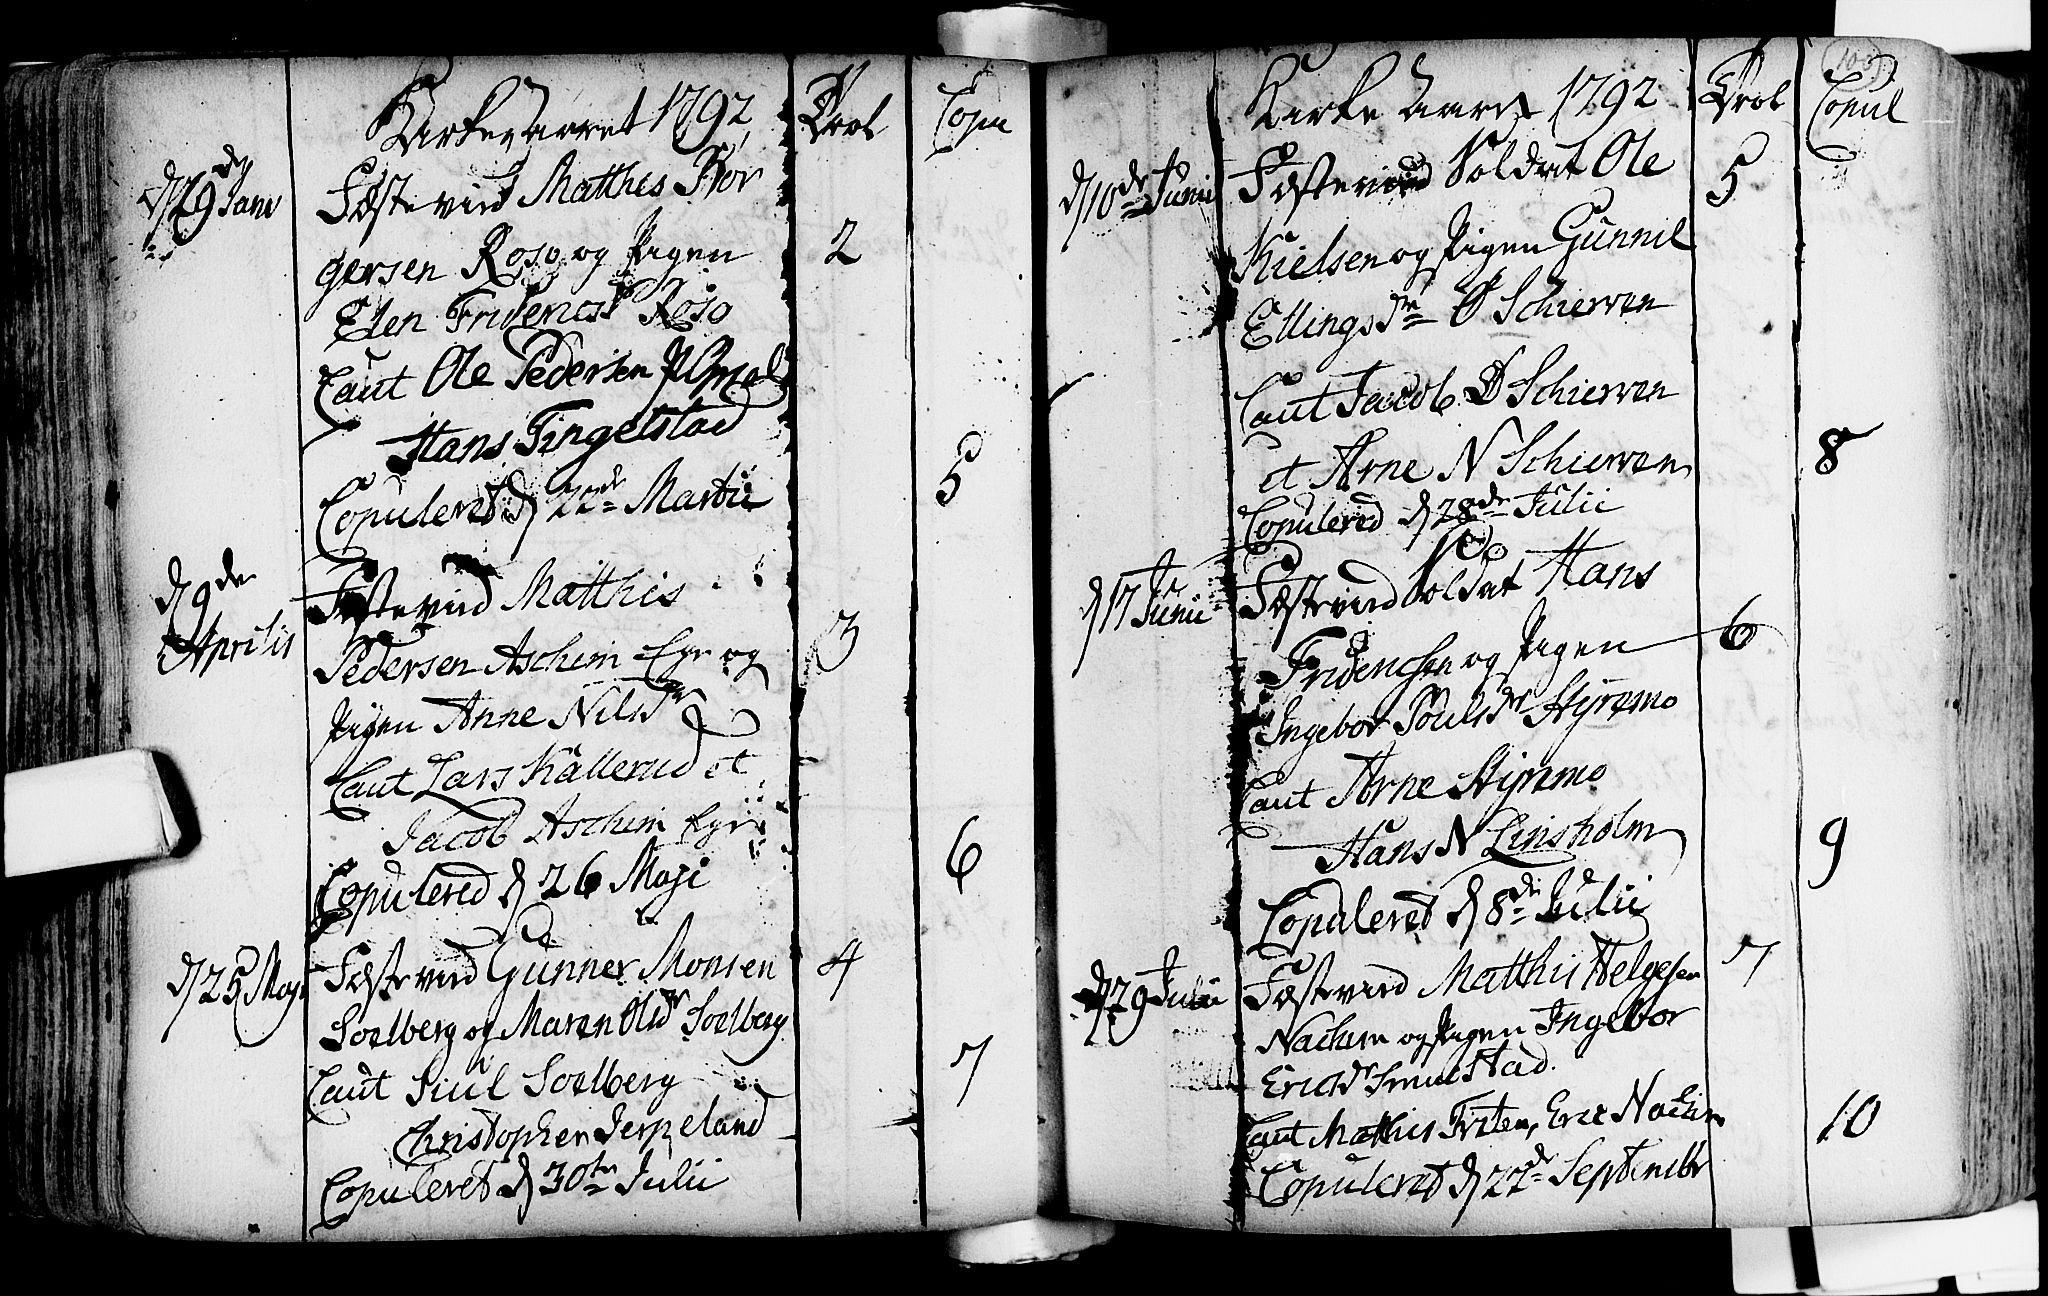 Kirke Aaret 1792
Trol
Copu
d 29de Janu
Fæstevird Matthis Bør
gersen Roso og Pigen
2
Elen Fridericsd Roso
Caut Ole Pedersen
Hans Tingelstad
5
Copuleret d 22de Martii
d 9de
Aprilis
Fæstevird Matthis
Pedersen Aschim Eyr og
3
Pigen Anne Nilsdr
Caut Lars Kallerud et
Jacob Aschim Eyr
6
Copulered d 26 Maji
d 25 Maji
Fæstevird Gunner Monsen
4
Soelberg og Maren Olsdr Soelberg
Caut Siul Soelberg
7
Christopher Jerpeland
Copuleret d 30te Julii
100
Kirke Aaret 1792
Trol
Copul
d 10de Junii
Fæstevird Soldat Ole
5
Kielsen og Pigen Gunnil
Ellingsdr Ø Schierven
Caut Jacob Ø Schierven
et Arne N Schierven
8
Copulered d 28de Julii
d 17 Junii
Fæstevird Soldat Hans
Fridericsen og Pigen
6
Ingebor Poulsdr Styremo
Caut Arne Styremo
Hans N Linsholm
9
Copuleret d 8de Julii
d 29 Julii
Fæstevird Matthis Helgesen
7
Nachim og Pigen Ingebor
Ericsdr Smulstad
Caut Mathis Fristen, Eric Nachim
10
Copuleret d 22de Septembr